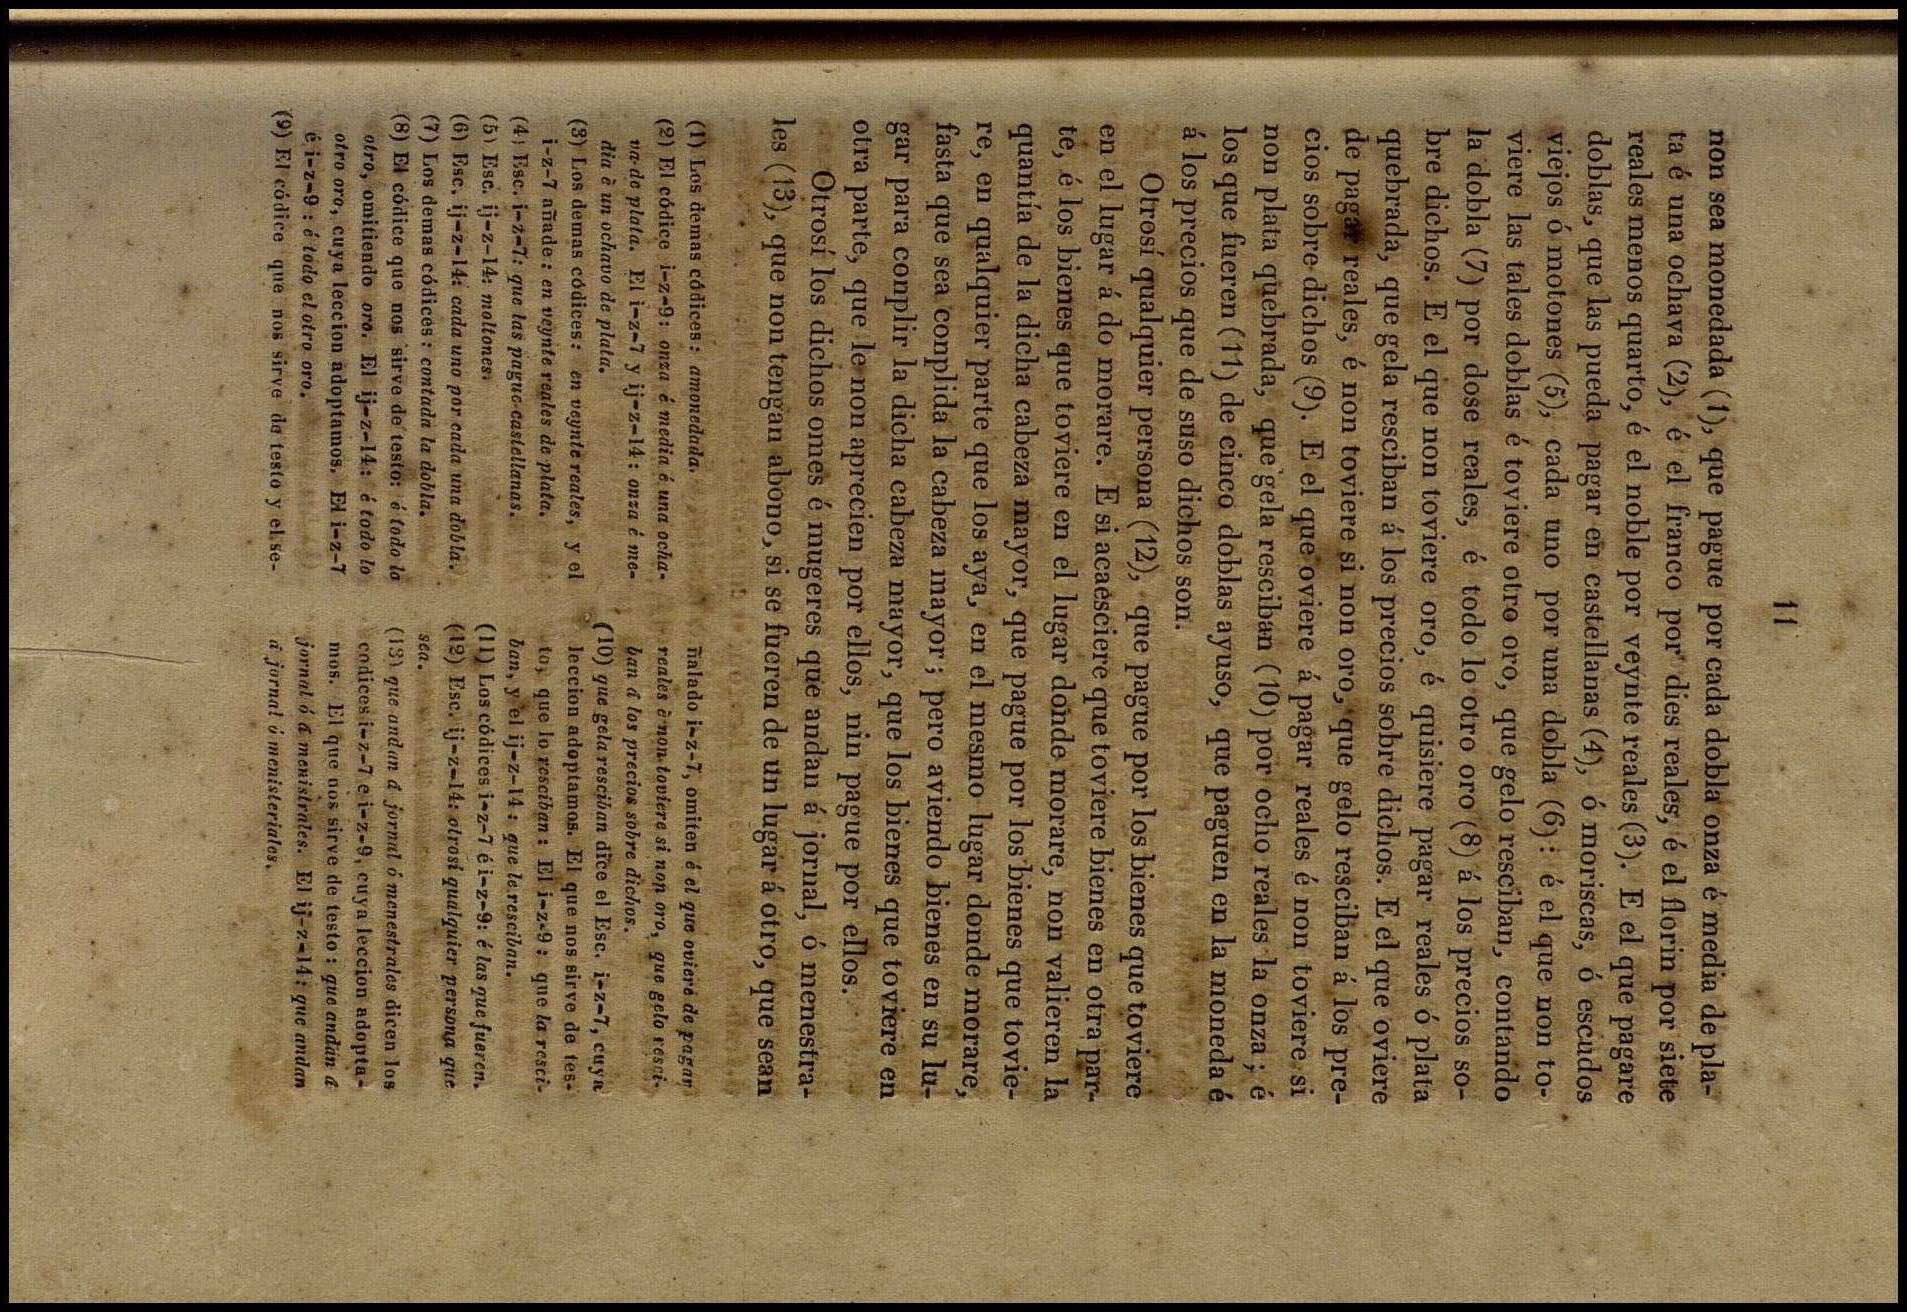 11
non sea monedada (1), que pague por cada dobla onza é media de pla-
ta é una ochava (2), é el franco por dies reales, é el florin por siete
reales menos quarto, é el noble por veynte reales (3). E el que pagare
doblas, que las pueda pagar en castellanas (4), ó moriscas, ó escudos
viejos ó motones (5), cada uno por una dobla (6): é el que non to-
viere las tales doblas é toviere otro oro, que gelo resciban, contando
la dobla (7) por dose reales, é todo lo otro oro (8) á los precios so-
bre dichos. E el que non toviere oro, é quisiere pagar reales ó plata
quebrada, que gela resciban á los precios sobre dichos. E el que oviere
de pagar reales, é non toviere si non oro, que gelo resciban á los pre-
cios sobre dichos (9). E el que oviere á pagar reales é non toviere si
non plata quebrada, que gela resciban (10) por ocho reales la onza; é
los que fueren (11) de cinco doblas ayuso, que paguen en la moneda é
á los precios que de suso dichos son.
Otrosí qualquier persona (12), que pague por los bienes que toviere
en el lugar á do morare. E si acaesciere que toviere bienes en otra par-
te, é los bienes que toviere en el lugar donde morare, non valieren la
quantía de la dicha cabeza mayor, que pague por los bienes que tovie-
re, en qualquier parte que los aya, en el mesmo lugar donde morare,
fasta que sea conplida la cabeza mayor; pero aviendo bienes en su lu-
gar para conplir la dicha cabeza mayor, que los bienes que toviere en
otra parte, que le non aprecien por ellos, nin pague por ellos.
Otrosí los dichos omes é mugeres que andan á jornal, ó menestra-
les (13), que non tengan abono, si se fueren de un lugar á otro, que sean
(1) Los demas códices: amonedada.
(2) El códice i-z-9: onza é media é una ocha-
va de plata. El i-z-7 y ij-z-14: onza é me-
dia è un ochavo de plata.
(3) Los demas códices: en veynte reales, y el
i-z-7 añade: en veynte reales de plata.
(4) Esc. i-z-7: que las pague castellanas.
(5) Esc. ij-z-14: moltones.
(6) Esc. ij-z-14: cada uno por cada una dobla.
(7) Los demas códices: contada la dobla.
(8) El códice que nos sirve de testo: é todo lo
otro, omitiendo oro. El ij-z-14: é todo lo
otro oro, cuya leccion adoptamos. El i-z-7
é i-z-9: é todo el otro oro.
(9) El códice que nos sirve de testo y el se-
ñalado i-z-7, omiten é el que oviere de pagar
reales è non toviere si non oro, que gelo resci-
ban á los precios sobre dichos.
(10) que gela resciban dice el Esc. i-z-7, cuya
leccion adoptamos. El que nos sirve de tes-
to, que lo resciban: El i-z-9: que la resci-
ban, y el ij-z-14: que le resciban.
(11) Los códices i-z-7 é i-z-9: é las que fueren.
(12) Esc. ij-z-14: otrosí qualquier persona que
sea.
(13) que andan á jornal ó menestrales dicen los
codices i-z-7 e i-z-9, cuya leccion adopta-
mos. El que nos sirve de testo: que andan á
jornal ó á menistrales. El ij-z-14: que andan
á jornal ó menisteriales.